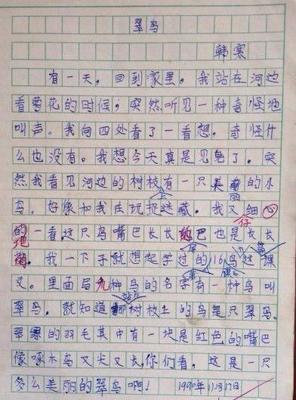 翠鸟
韩寒
有一天。回到家里。我站在河边
看菊花的时候，突然听见一种奇怪地
叫声。我向四处看了一看想。奇怪什
么也没有。我想今天真是见鬼了。突
然我看见河边的树枝有一只美丽的小
鸟。好像和我在玩捉迷藏。我又细心
仔
的一看这只鸟嘴巴长长尾巴也是长长
地
的。我一下子就想起学过的《16鸟》这课
文。里面有几种鸟的名字有一种鸟叫
翠鸟。就知道哪树枝上的鸟是只翠鸟。
翠绿的羽毛其中有一块是红色的嘴巴
像啄木鸟又尖又长你们看。这是一只
多么美丽的翠鸟啊！